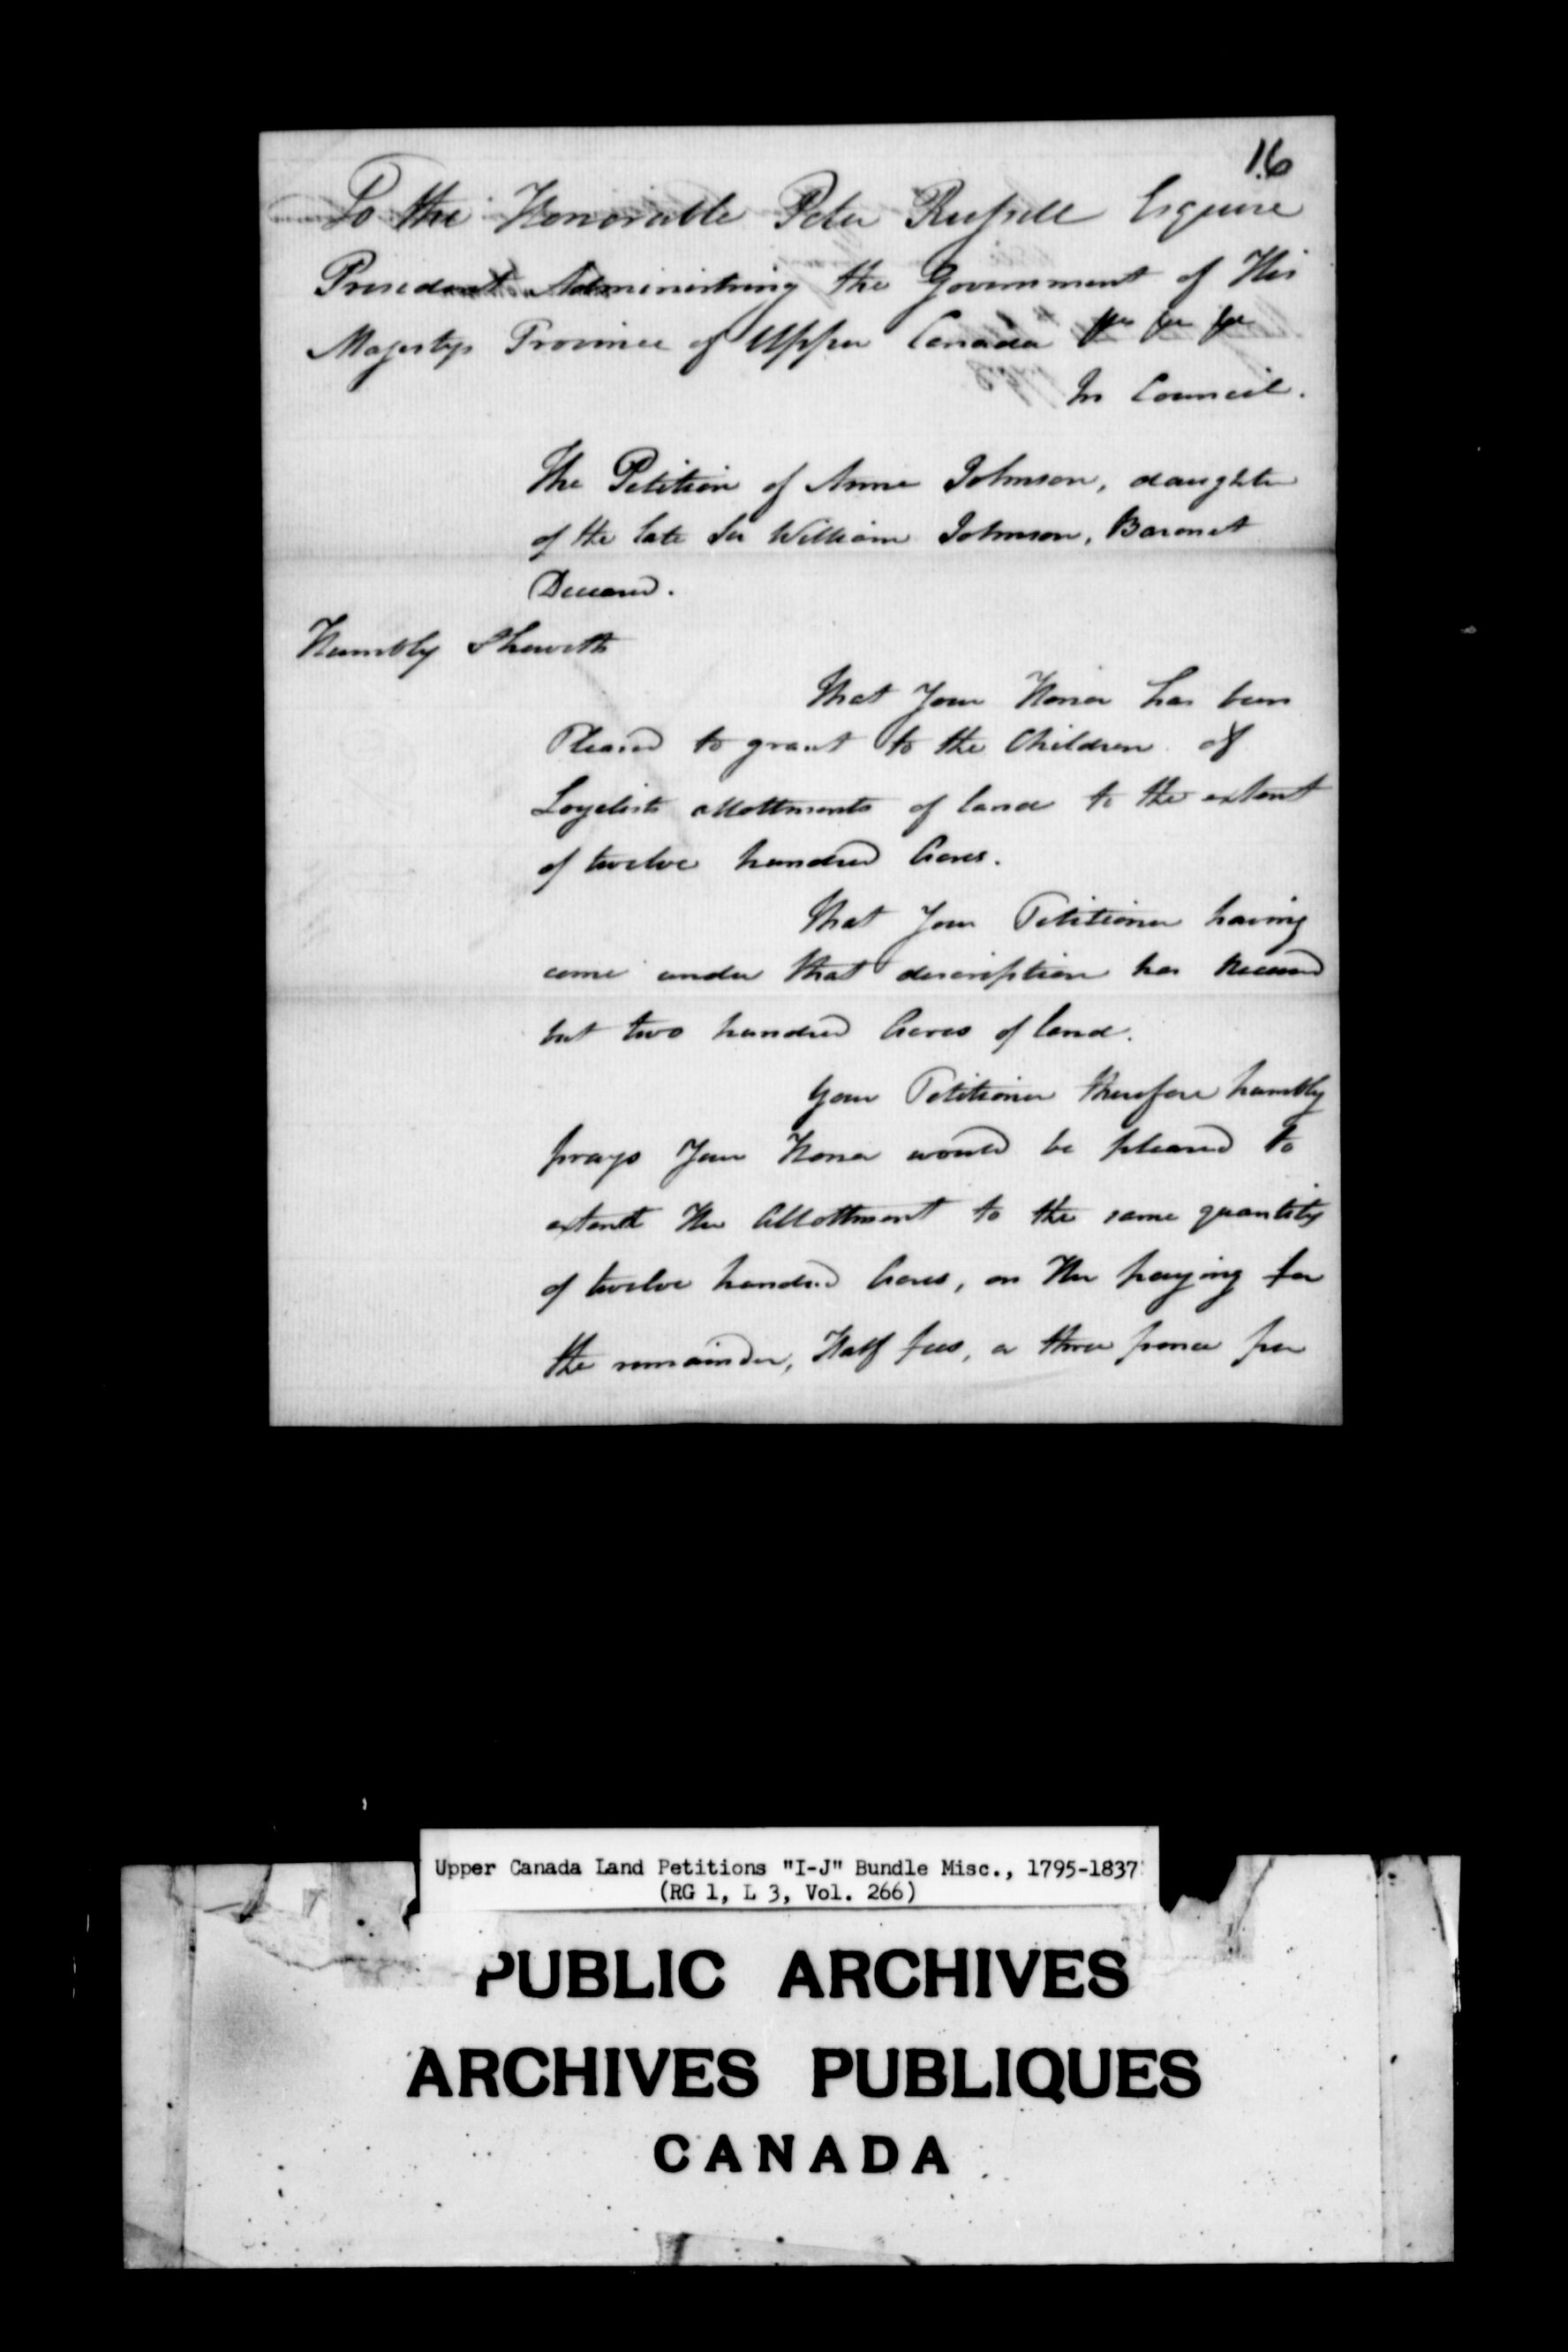 16
To the Honorable Peter Russell Esquire
President Administring the Government of His
Majestys Province of Upper Canada &c &c &c
In Council.
The Petition of Anne Johnson, daughter
of the late Sir William Johnson, Baronet
Deceased.
Humbly Sheweth
That Your Honor has been
Pleased to grant to the Children of
Loyalists allottments of land to the extent
of twelve hundred Acres.
That Your Petitioner having
come under that description has Received
but two hundred Acres of land.
Your Petitioner therefore humbly
prays Your Honor would be pleased to
extend Her Allottment to the same quantity
of twelve hundred Acres, on Her paying for
the remainder, Half fees, or three pence per
Upper Canada Land Petitions "I-J" Bundle Misc., 1795-1837
(RG 1, L 3, Vol. 266)
PUBLIC ARCHIVES
ARCHIVES PUBLIQUES
CANADA